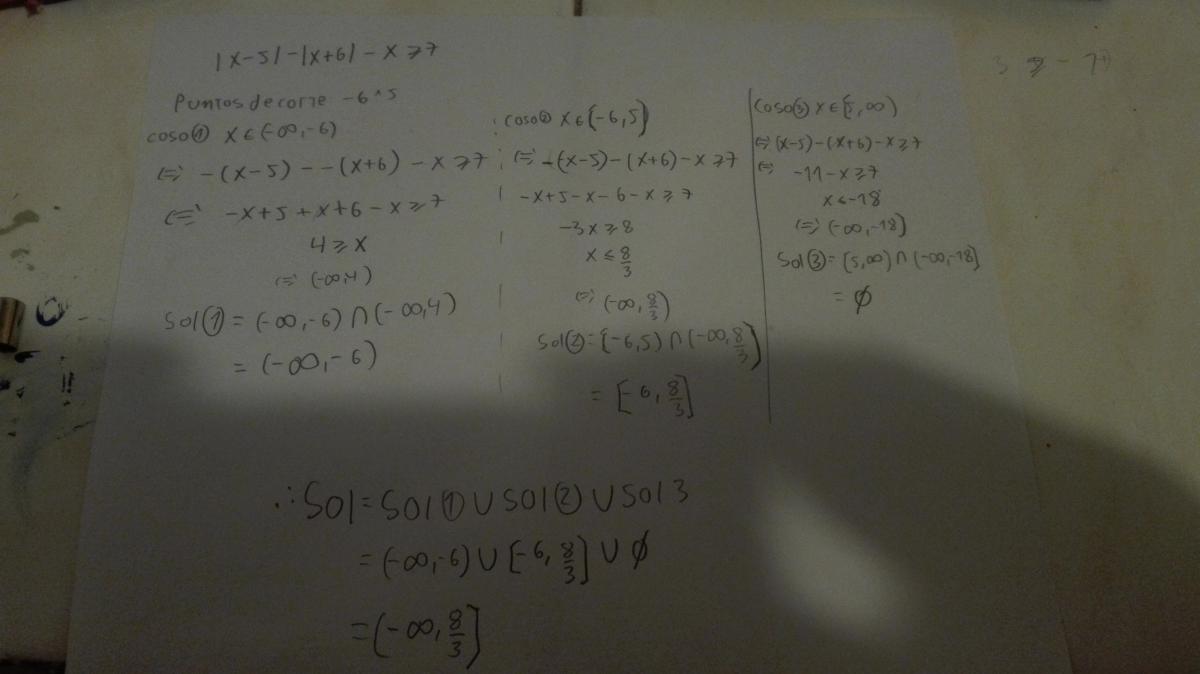 |x-5|-|x+6|-x≥7
Puntos de corte -6 ^ 5
caso ① x∈(-∞,-6)
⇔ -(x-5)--(x+6)-x≥7
⇔ -x+5+x+6-x≥7
4≥x
⇔ (-∞,4)
Sol① = (-∞,-6)∩(-∞,4)
= (-∞,-6)
caso② x∈[-6,5)
⇔ -(x-5)-(x+6)-x≥7
-x+5-x-6-x≥7
-3x≥8
x≤8/3
⇔ (-∞,8/3)
Sol②=[-6,5)∩(-∞,8/3)
= [-6,8/3]
caso③ x∈[5,∞)
⇔ (x-5)-(x+6)-x≥7
⇔ -11-x≥7
x≤-18
⇔ (-∞,-18]
Sol③= [5,∞)∩(-∞,-18]
= ∅
∴ Sol = Sol① ∪ Sol② ∪ Sol 3
= (-∞,-6) ∪ [-6,8/3] ∪ ∅
= (-∞,8/3]